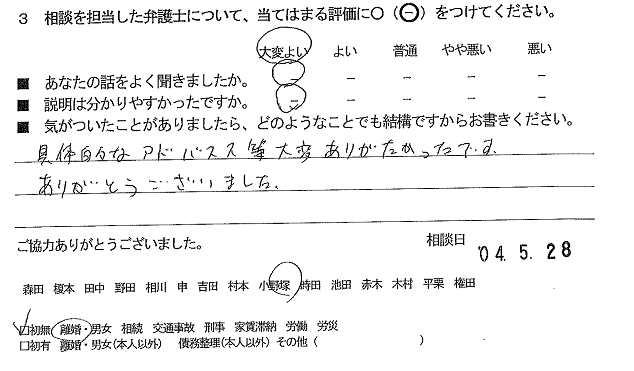 3 相談を担当した弁護士について、当てはまる評価に○（⊖）をつけてください。
大変よい よい 普通 やや悪い 悪い
■ あなたの話をよく聞きましたか。 － － － － －
■ 説明は分かりやすかったですか。 － － － － －
■ 気がついたことがありましたら、どのようなことでも結構ですからお書きください。
具体的なアドバスス等大変ありがたかったです。
ありがとうございました。
ご協力ありがとうございました。 相談日 '04.5.28
森田 榎本 田中 野田 相川 申 吉田 村本 小野塚 時田 池田 赤木 木村 平栗 権田
□初無 離婚・男女 相続 交通事故 刑事 家賃滞納 労働 労災
□初有 離婚・男女(本人以外) 債務整理(本人以外) その他（ ）